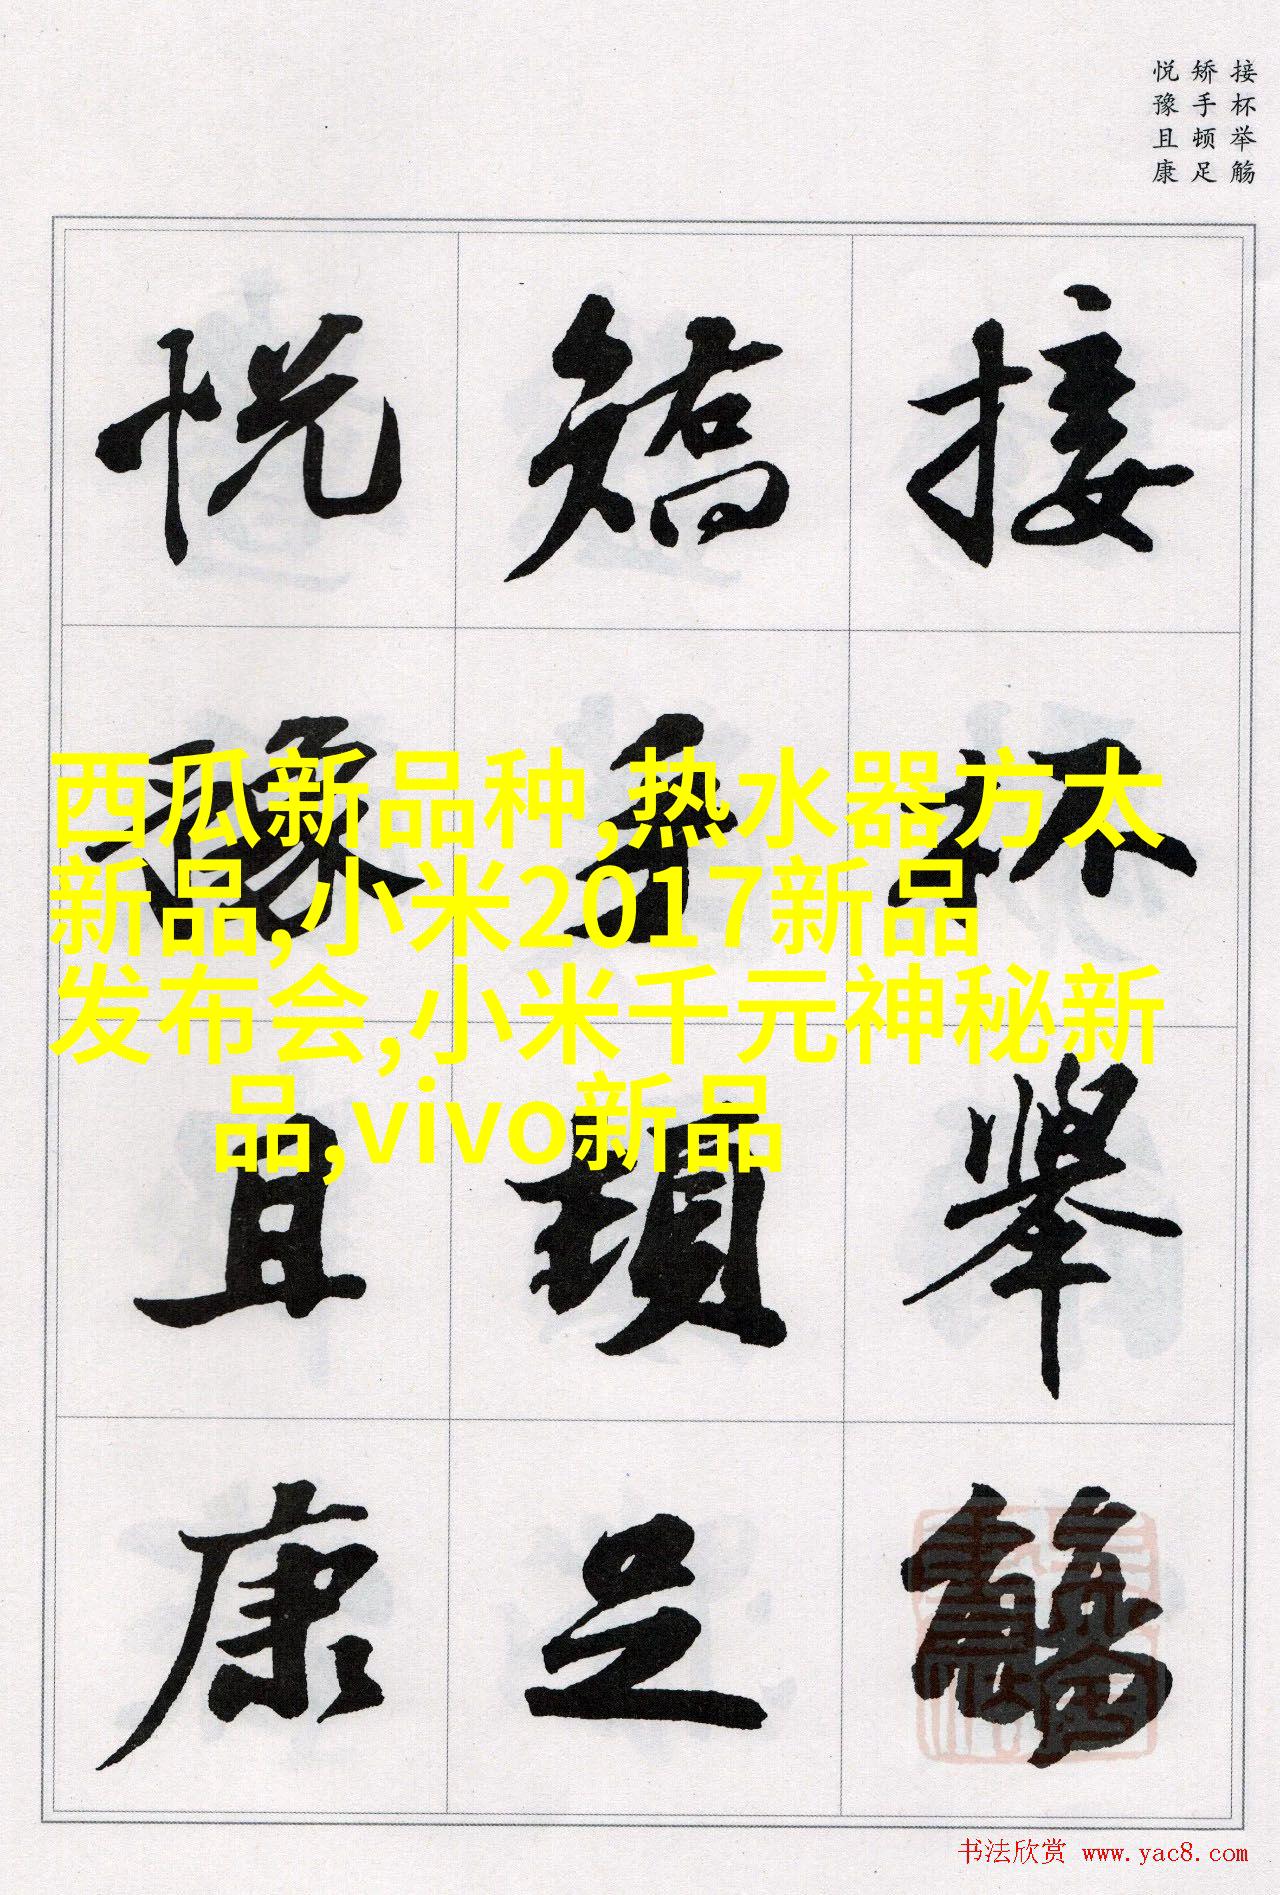 接杯举觞
矫手顿足
悦豫且康
接杯舉觴
矯手頓足
悦豫且康
西瓜新品种,热水器方太
新品,小米2017新品
发布会,小米千元神秘新
品,vivo新品
书法欣赏 www.yac8.com